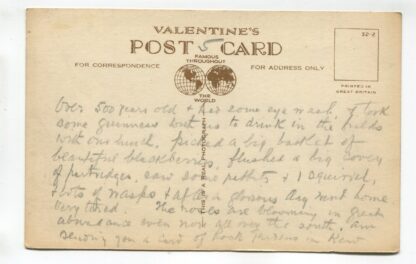 VALENTINE'S
POST 5 CARD
FAMOUS
THROUGHOUT
FOR CORRESPONDENCE
FOR ADDRESS ONLY
THE
WORLD
52-2
PRINTED IN
GREAT BRITAIN
THIS IS A REAL PHOTOGRAPH
Over 500 years old & has some eye wash. I took
some Guinness with us to drink in the fields
with our lunch, picked a big basket of
beautiful blackberries, flushed a big covey
of partridges, saw some rabbits & 1 squirrel,
& lots of wasps & after a glorious day went home
very tired. The roses are blooming in great
abundance even now all over the south. am
sending you a view of rock gardens in Kew